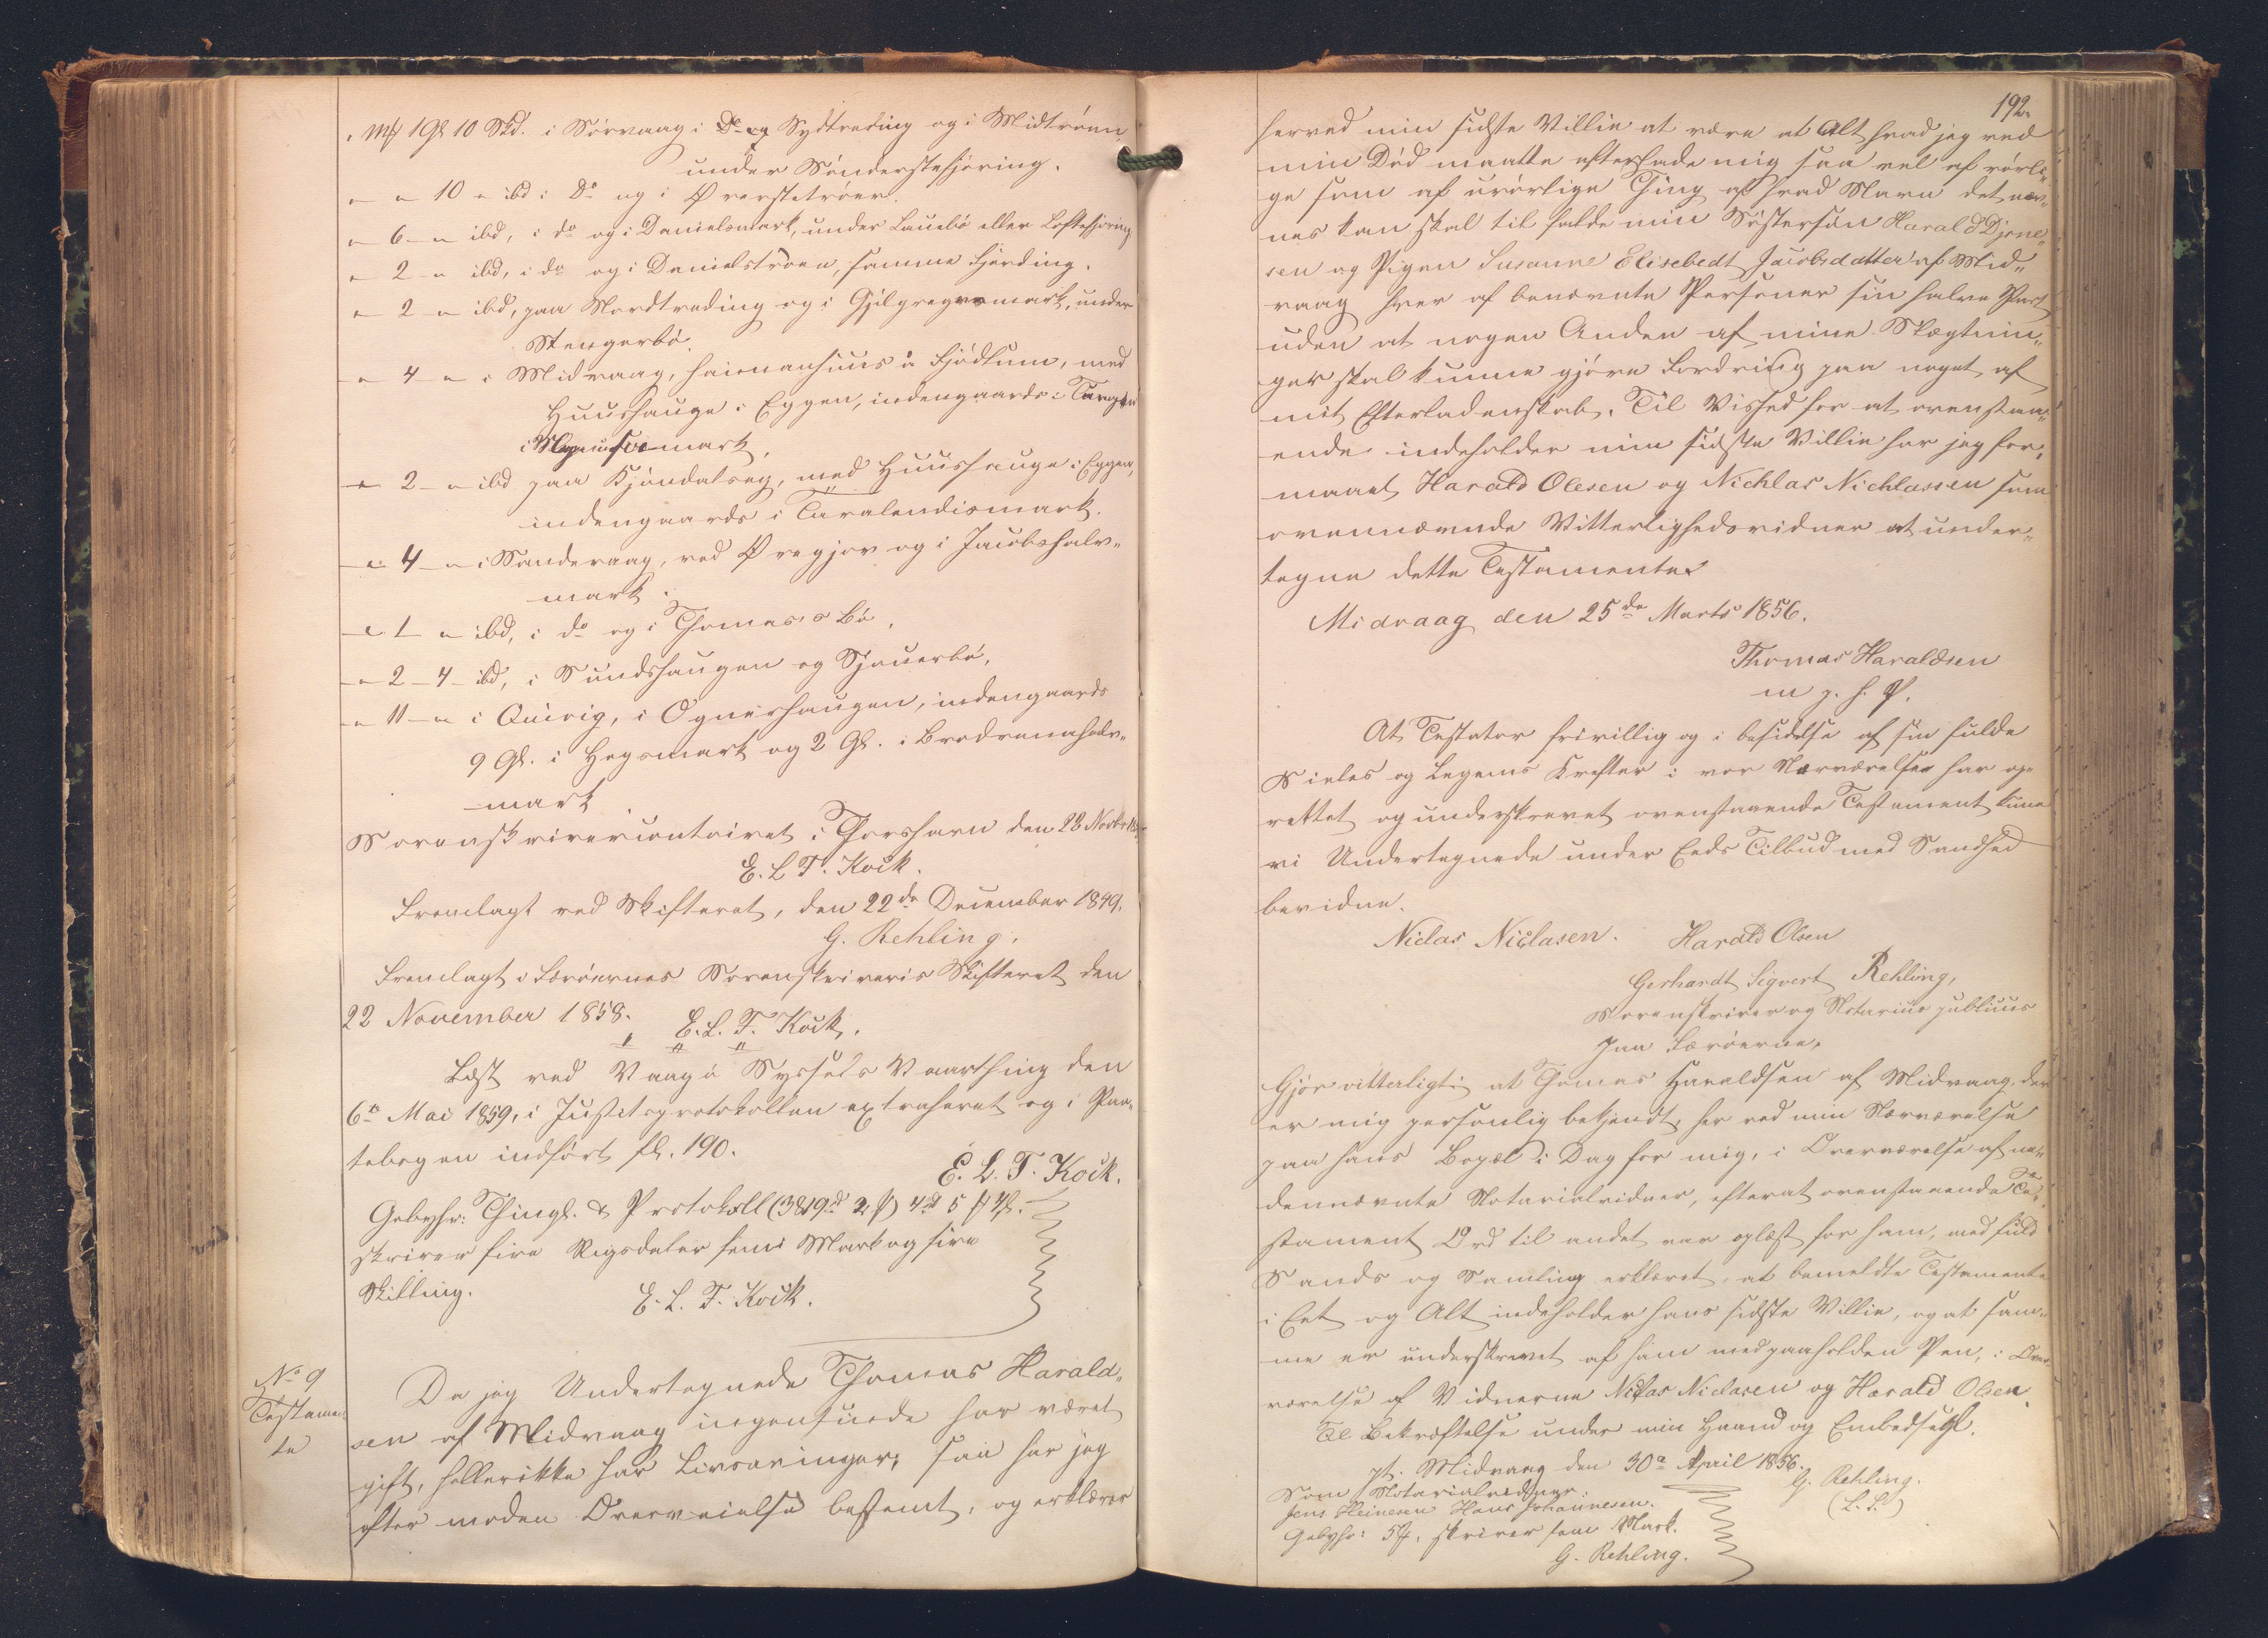 Mk 1 Gl 10 Skd. i Sörvaag i Do og Sydtreding og i Midtröen
under Sönderstefjöring.
" " 10 " ibd i Do og i Överstetröen.
" 6 " ibd, i do og i Danielsmark, under Lauebö eller Loftefjöring
" 2 " ibd, i do og i Danielströen, samme Fjerding.
" 2 " ibd, paa Nordtreding og i mark, under
Stengerbö.
" 4 " i Midvaag, å Fjödlum, med
Huushauge i Eggen, indengaards i
mark,
" 2 " ibd paa med Huushauge i Eggen,
indengaards i mark.
" 4 " i Sandevaag, ved og i Jacobshalv"
mark.
" 1 " ibd, i do og i Thomasso Bö,
" 2 4 ibd, i Sundshaugen og
" 11 " i Qvivig, i Ognerhaugen, indengaards
9 Gl. i Hegsmark og 2 Gl. i
mark
Sorenskrivercontoiret i Thorshavn den 28 Novbr
E. L. T. Kock.
Fremlagt ved Skifteret, den 22de December 1849.
G. Rehling.
Fremlagt i Færöernes Sorenskriveris Skifteret den
22 November 1858.
E. L. T. Kock.
Læst ved Vaagö Syssels Vaarthing den
6te Mai 1859, i Justitsprotokollen extraheret og i Pan"
tebogen indfört fl. 190.
E. L. T. Kock.
Gebyhr: Thingl. & Protokoll 4rd 5 Mk 4 s.
skriver fire Rigsdaler fem Mark og fire
Skilling.
E. L. T. Kock.
No 9
Testamen
te
Da jeg Undertegnede Thomas Harald"
sen af Midvaag ingensinde har været
gift, heller ikke har Livsarvinger, saa har jeg
efter moden Overveielse bestemt, og erklærer
192.
herved min sidste Villie at være at Alt hvad jeg ved
min Död maatte efterlade mig saa vel af rörli"
ge som af urörlige Ting af hvad Navn det næv"
nes kan skal til falde min Söstersön Harald Djone"
sen og Pigen Susanne Elisebedt Jacobsdatter af Mid"
vaag hver af benævnte Personer sin halve Part
uden at nogen Anden af mine Slægtnin"
ger skal kunne gjöre Fordring paa noget af
mit Efterladenskab. Til Vished for at ovenstaa"
ende indeholder min sidste Villie har jeg for"
maaet Harald Olesen og Nichlas Nichlassen som
ovennævnde Vitterlighedsvidner at under"
tegne dette Testamente
Midvaag den 25de Marts 1856.
Thomas Haraldsen
m. p. h. P.
At Testator frivillig og i besidelse af sin fulde
Siels og Legems Krefter i vor Nærværelse har op"
rettet og underskrevet ovenstaaende Testament kunne
vi Undertegnede under Eeds Tilbud med Sandhed
bevidne.
Niclas Niclasen. Harald Olsen
Gerhardt Sigvert Rehling,
Sorenskriver og Notarius publicus
paa Færöerne,
Gjör vitterligt: at Thomas Haraldsen af Midvaag, der
er mig personlig bekjendt, har ved min Nærværelse
paa hans Bopæl i Dag for mig, i Overværelse af ne"
dennævnte Notarialvidner, efterat ovenstaaende Te"
stament Ord til andet var oplæst for ham, med fuld
Sands og Samling erklæret, at bemeldte Testamente
i Eet og Alt indeholder hans sidste Villie, og at sam"
me er underskrevet af ham med paaholden Pen, i Over
værelse af Vidnerne Niclas Niclasen og Harald Olsen.
Til Bekræftelse under min Haand og Embedssegl.
pt. Midvaag den 30te April 1856.
G. Rehling.
(L. S.)
Som Notarialvidner:
Jens Heinesen Hans Johannesen.
Gebyhr: 5 Mk, skriver fem Mark.
G. Rehling.